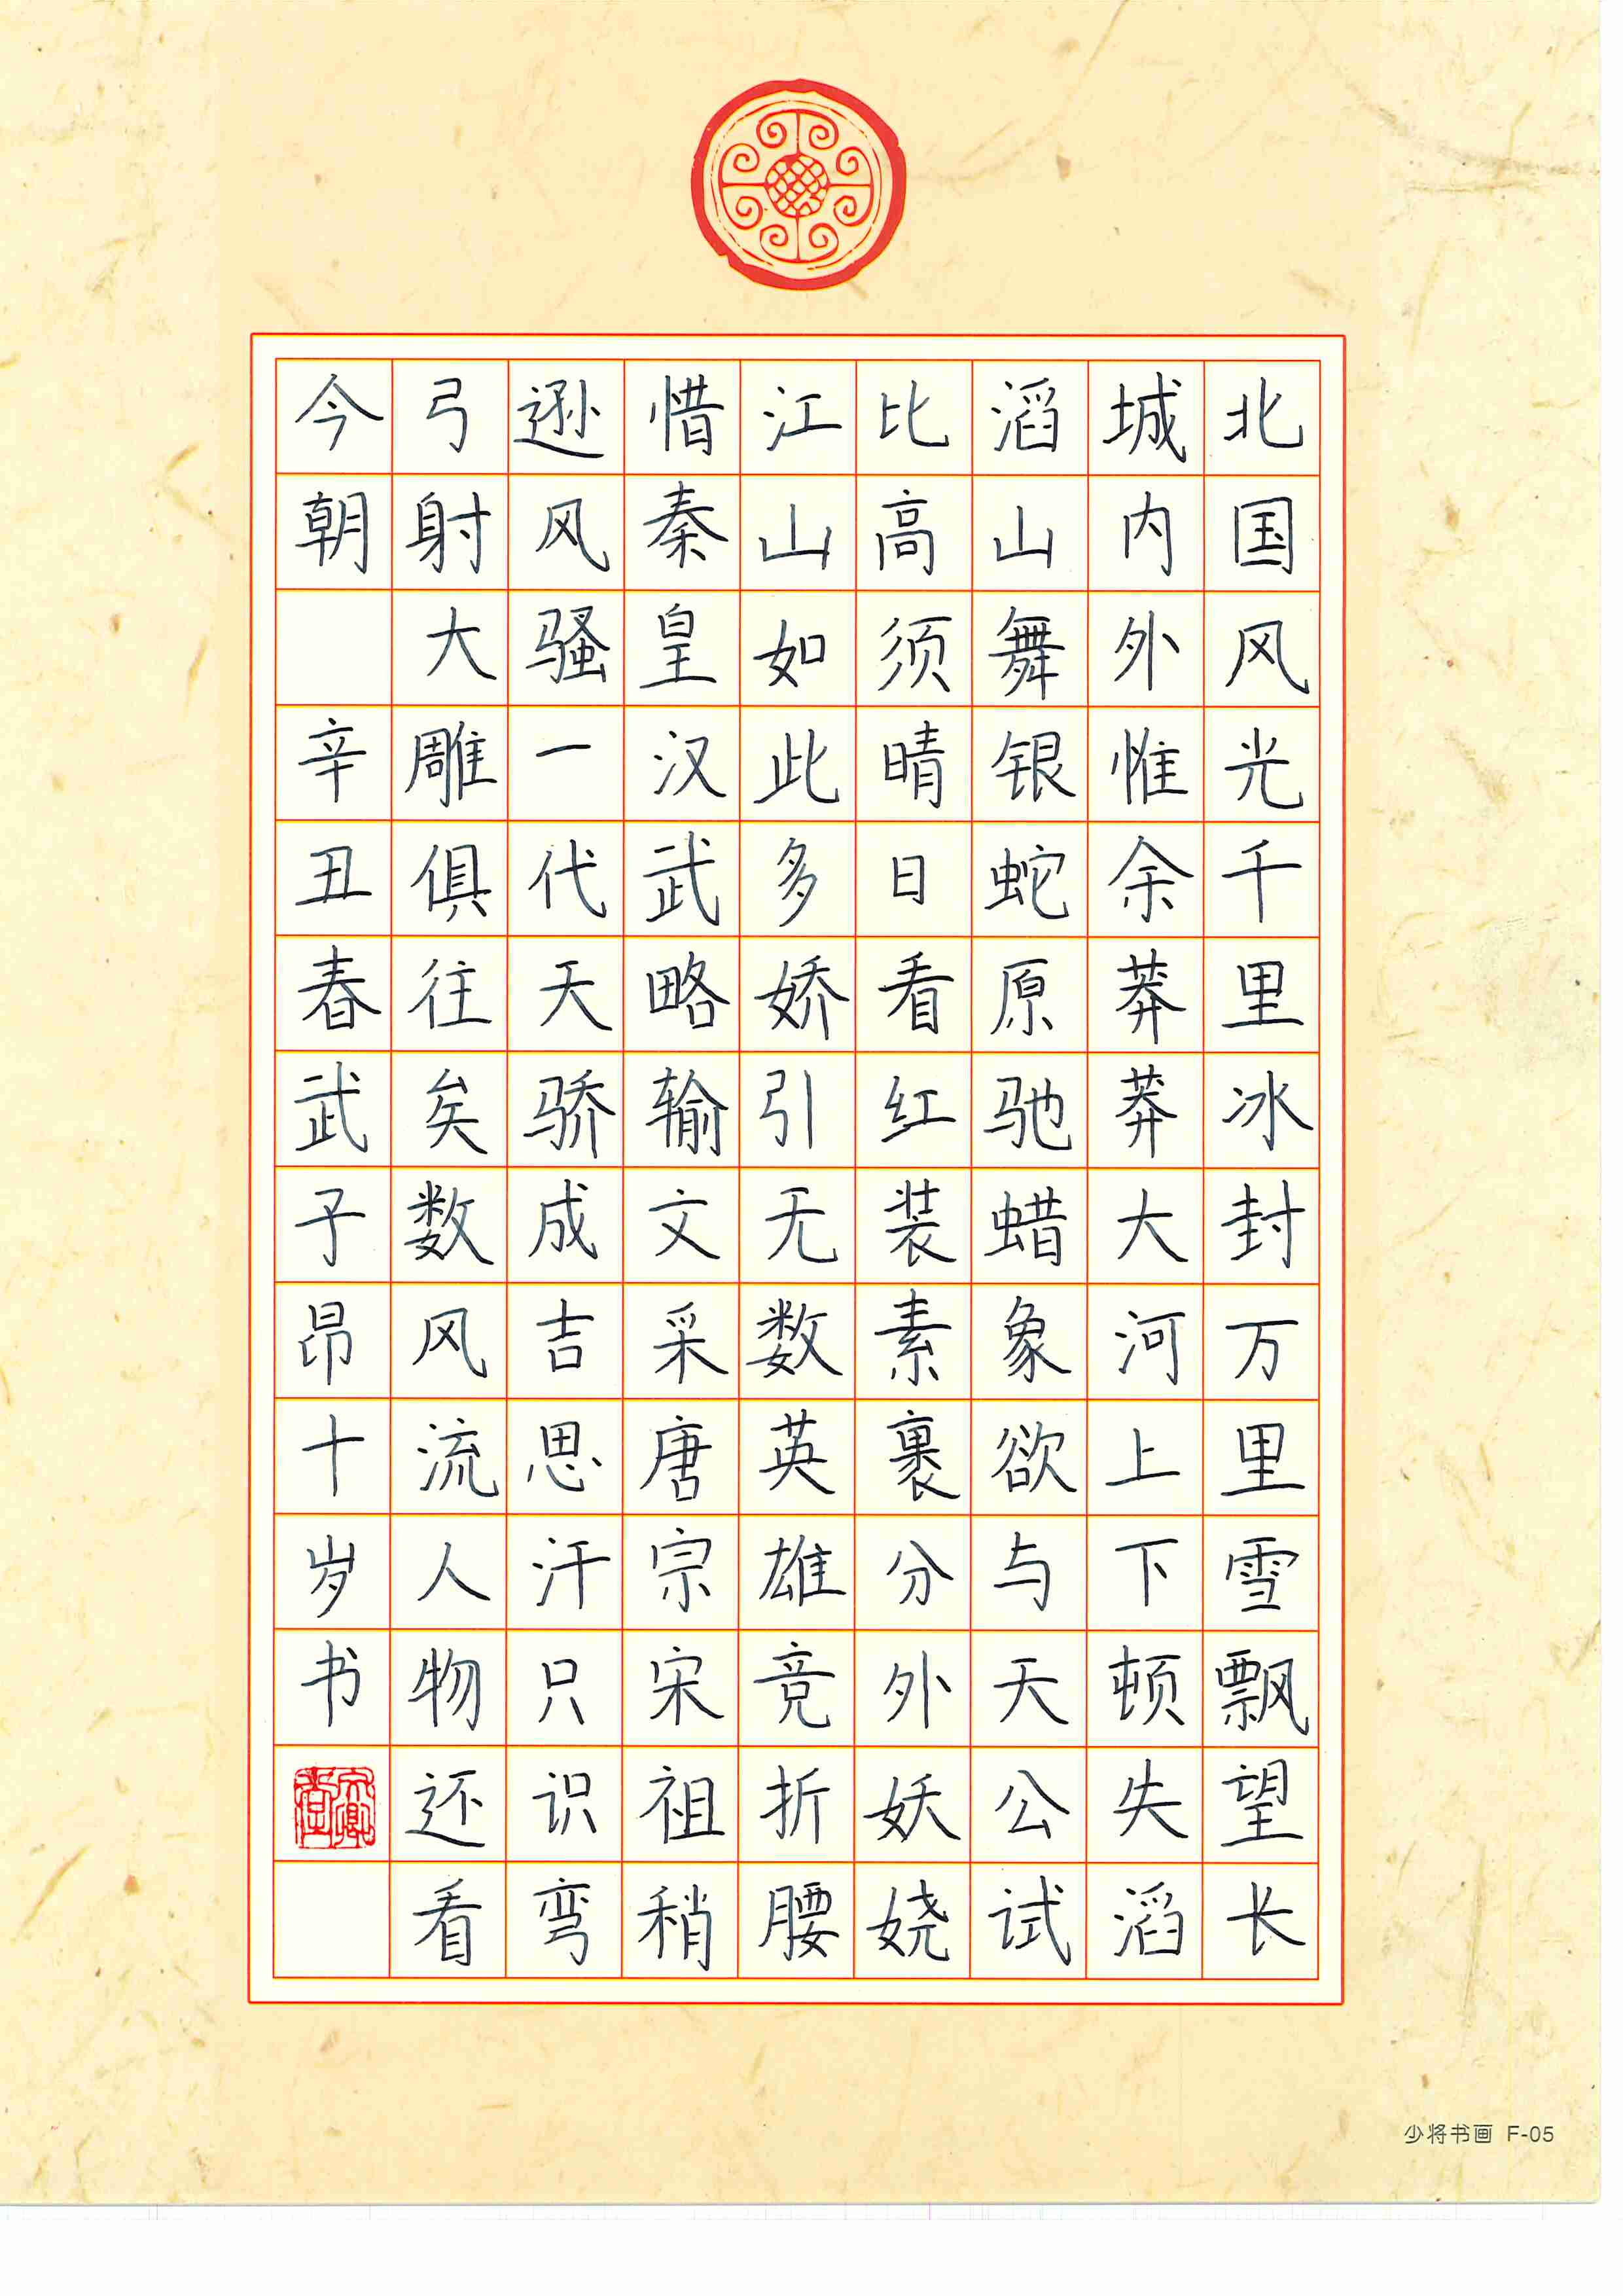 北国风光千里冰封万里雪飘望长
城内外惟余莽莽大河上下顿失滔
滔山舞银蛇原驰蜡象欲与天公试
比高须晴日看红装素裹分外妖娆
江山如此多娇引无数英雄竞折腰
惜秦皇汉武略输文采唐宗宋祖稍
逊风骚一代天骄成吉思汗只识弯
弓射大雕俱往矣数风流人物还看
今朝 辛丑春武子昂十岁书
少将书画 F-05